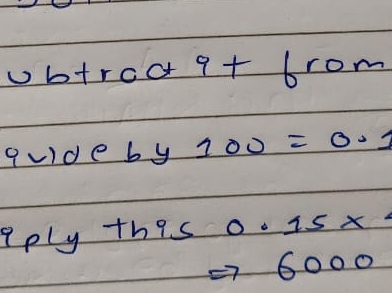 ubtract it from
ivide by 100 = 0.1
iply this 0.15 x
=> 6000